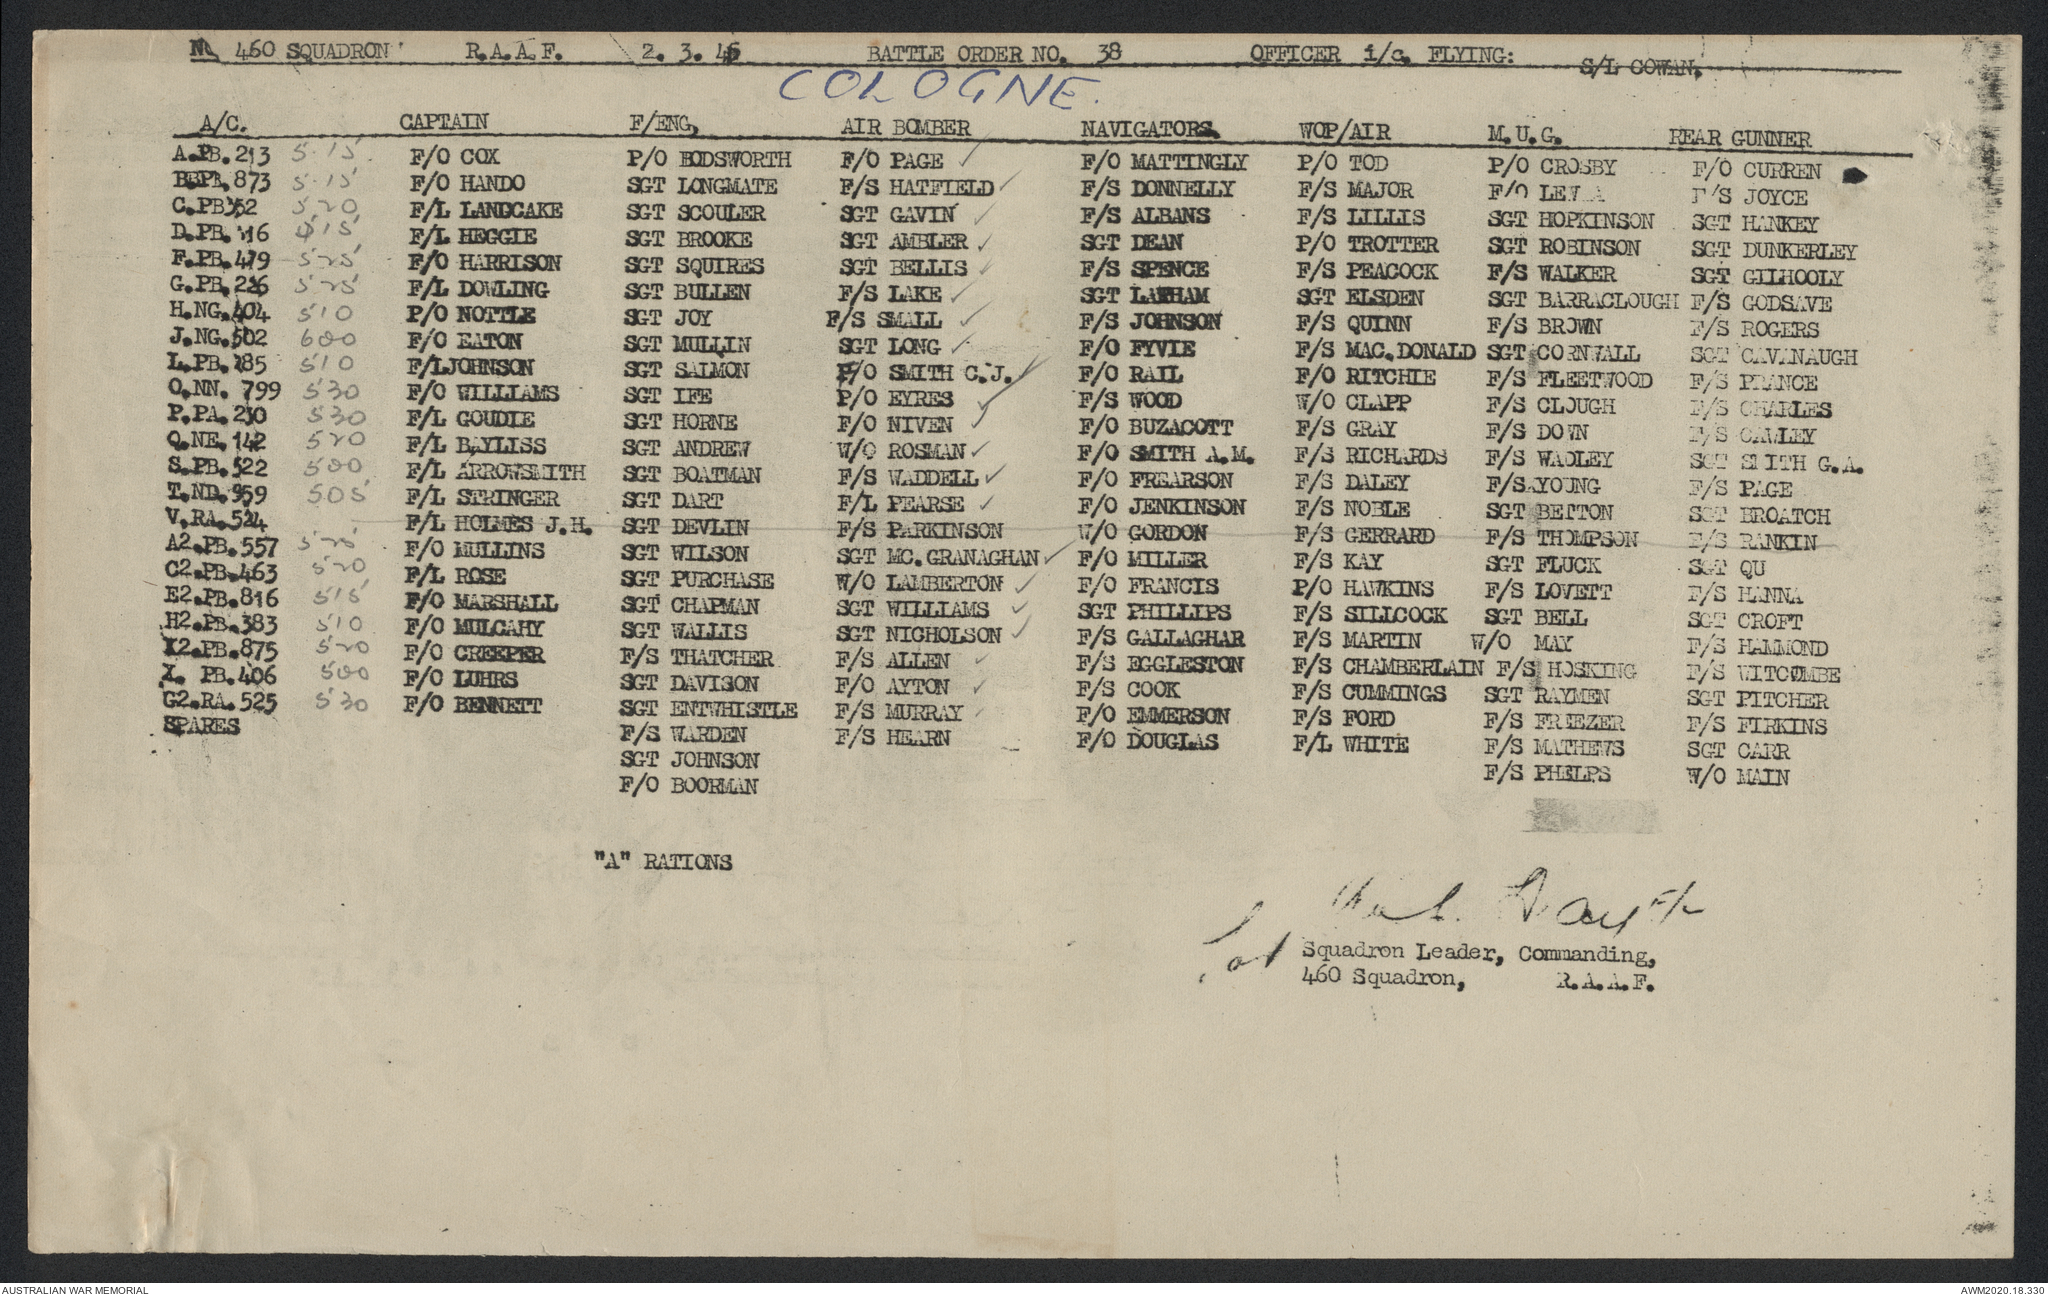 No 460 SQUADRON R.A.A.F. 2. 3. 45 BATTLE ORDER NO. 38 OFFICER i/c. FLYING: S/L COWAN.
COLOGNE.
A/C. CAPTAIN F/ENG, AIR BOMBER NAVIGATORS. WOP/AIR M.U.G. REAR GUNNER
A.PB.213 515 F/O COX P/O BODSWORTH F/O PAGE ✓ F/O MATTINGLY P/O TOD P/O CROSBY F/O CURREN
873 515 F/O HANDO SGT LONGMATE F/S HATFIELD ✓ F/S DONNELLY F/S MAJOR F/O F/S JOYCE
C.PB. 520 F/L LANDCAKE SGT SCOULER SGT GAVIN ✓ F/S ALBANS F/S LILLIS SGT HOPKINSON SGT HANKEY
D.PB. 515 F/L HEGGIE SGT BROOKE SGT AMBLER ✓ SGT DEAN P/O TROTTER SGT ROBINSON SGT DUNKERLEY
F.PB.479 525 F/O HARRISON SGT SQUIRES SGT BELLIS ✓ F/S SPENCE F/S PEACOCK F/S WALKER SGT GILHOOLY
G.PB.226 525 F/L DOWLING SGT BULLEN F/S LAKE ✓ SGT SGT ELSDEN SGT BARRACLOUGH F/S GODSAVE
H.NG.404 510 P/O NOTTLE SGT JOY F/S SMALL ✓ F/S JOHNSON F/S QUINN F/S BROWN F/S ROGERS
J.NG.502 600 F/O EATON SGT MULLIN SGT LONG ✓ F/O FYVIE F/S MAC.DONALD SGT CORNWALL SGT CAVANAUGH
L.PB.185 510 F/LJOHNSON SGT SALMON F/O SMITH C.J. ✓ F/O RAIL F/O RITCHIE F/S FLEETWOOD F/S PRANCE
O.NN. 799 530 F/O WILLIAMS SGT IFE P/O EYRES ✓ F/S WOOD W/O CLAPP F/S CLOUGH F/S CHARLES
P.PA.230 530 F/L GOUDIE SGT HORNE F/O NIVEN ✓ F/O BUZACOTT F/S GRAY F/S DOWN F/S CAWLEY
Q.NE.142 520 F/L BAYLISS SGT ANDREW W/O ROSMAN ✓ F/O SMITH A.M. F/S RICHARDS F/S WADLEY SGT SMITH G.A.
S.PB.522 500 F/L ARROWSMITH SGT BOATMAN F/S WADDELL ✓ F/O FREARSON F/S DALEY F/S YOUNG F/S PAGE
T.ND.959 505 F/L STRINGER SGT DART F/L PEARSE ✓ F/O JENKINSON F/S NOBLE SGT BETTON SGT BROATCH
V.RA.524 F/L HOLMES J.H. SGT DEVLIN F/S PARKINSON W/O GORDON F/S GERRARD F/S THOMPSON F/S RANKIN
A2.PB.557 525 F/O MULLINS SGT WILSON SGT MC.GRANAGHAN ✓ F/O MILLER F/S KAY SGT FLUCK SGT QU
C2.PB.463 520 F/L ROSE SGT PURCHASE W/O LAMBERTON ✓ F/O FRANCIS P/O HAWKINS F/S LOVETT F/S HANNA
E2.PB.816 515 F/O MARSHALL SGT CHAPMAN SGT WILLIAMS ✓ SGT PHILLIPS F/S SILLCOCK SGT BELL SGT CROFT
H2.PB.383 510 F/O MULCAHY SGT WALLIS SGT NICHOLSON ✓ F/S GALLAGHAR F/S MARTIN W/O MAY F/S HAMMOND
K2.PB.875 520 F/O CREEPER F/S THATCHER F/S ALLEN ✓ F/S EGGLESTON F/S CHAMBERLAIN F/S HOSKING F/S WITCOMBE
PB.406 500 F/O LUHRS SGT DAVISON F/O AYTON ✓ F/S COOK F/S CUMMINGS SGT RAYMEN SGT PITCHER
G2.RA.525 530 F/O BENNETT SGT ENTWHISTLE F/S MURRAY ✓ F/O EMMERSON F/S FORD F/S FREEZER F/S FIRKINS
SPARES F/S WARDEN F/S HEARN F/O DOUGLAS F/L WHITE F/S MATHEWS SGT CARR
SGT JOHNSON F/S PHELPS W/O MAIN
F/O BOORMAN
"A" RATIONS
for Squadron Leader, Commanding,
460 Squadron, R.A.A.F.
AUSTRALIAN WAR MEMORIAL
AWM2020.18.330